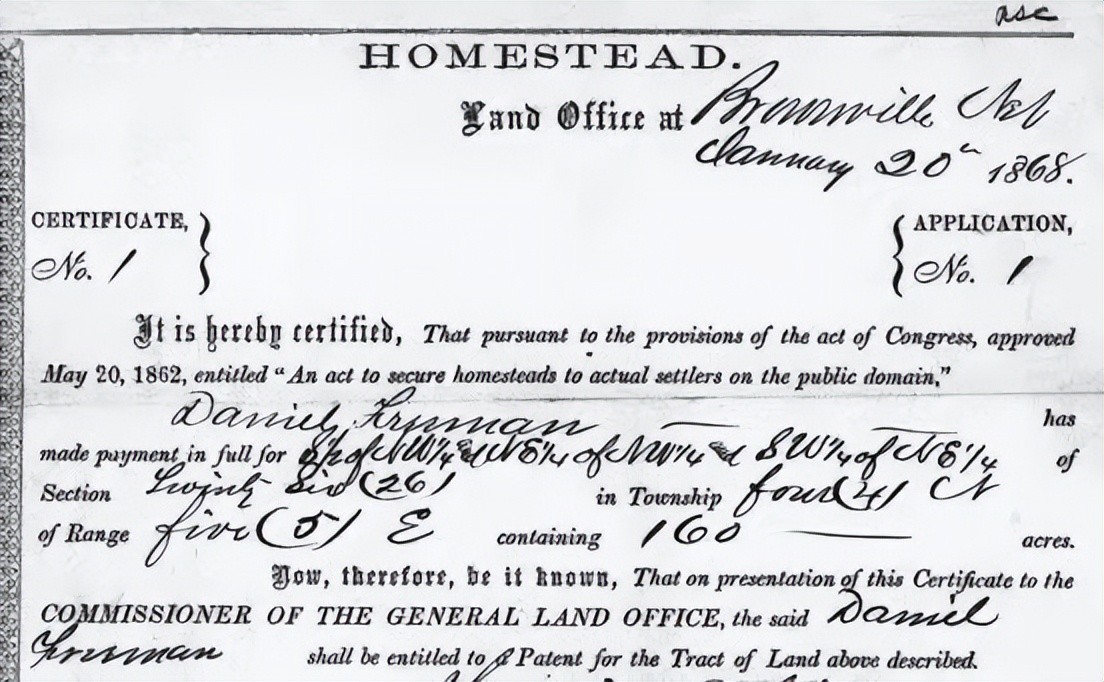 asc
HOMESTEAD.
Land Office at Brownville Neb
January 20th 1868.
CERTIFICATE, } { APPLICATION,
No. 1 } { No. 1
It is hereby certified, That pursuant to the provisions of the act of Congress, approved
May 20, 1862, entitled “An act to secure homesteads to actual settlers on the public domain,”
Daniel Freeman has
made payment in full for S½ of NW¼ & NE¼ of NW¼ & SW¼ of NE¼ of
Section Twenty Six (26) in Township four (4) N
of Range five (5) E containing 160 acres.
Now, therefore, be it known, That on presentation of this Certificate to the
COMMISSIONER OF THE GENERAL LAND OFFICE, the said Daniel
Freeman shall be entitled to a Patent for the Tract of Land above described.